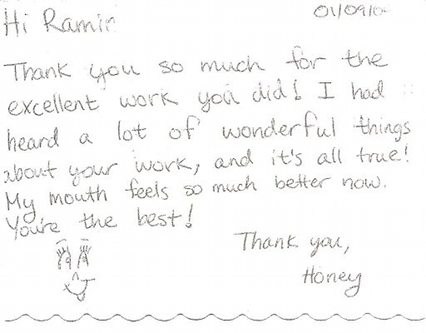 Hi Ramin
01/09/0
Thank you so much for the
excellent work you did! I had
heard a lot of wonderful things
about your work, and it's all true!
My mouth feels so much better now.
You're the best!
Thank you,
Honey